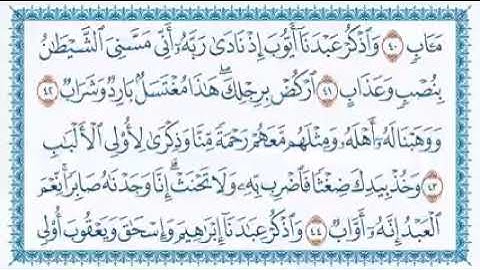 مَـَٔابٍ ٤٠ وَٱذْكُرْ عَبْدَنَآ أَيُّوبَ إِذْ نَادَىٰ رَبَّهُۥٓ أَنِّى مَسَّنِىَ ٱلشَّيْطَـٰنُ
بِنُصْبٍ وَعَذَابٍ ٤١ ٱرْكُضْ بِرِجْلِكَ ۖ هَـٰذَا مُغْتَسَلٌۢ بَارِدٌ وَشَرَابٌ ٤٢
وَوَهَبْنَا لَهُۥٓ أَهْلَهُۥ وَمِثْلَهُم مَّعَهُمْ رَحْمَةً مِّنَّا وَذِكْرَىٰ لِأُو۟لِى ٱلْأَلْبَـٰبِ
٤٣ وَخُذْ بِيَدِكَ ضِغْثًا فَٱضْرِب بِّهِۦ وَلَا تَحْنَثْ ۗ إِنَّا وَجَدْنَـٰهُ صَابِرًا ۚ نِّعْمَ
ٱلْعَبْدُ ۖ إِنَّهُۥٓ أَوَّابٌ ٤٤ وَٱذْكُرْ عِبَـٰدَنَآ إِبْرَٰهِيمَ وَإِسْحَـٰقَ وَيَعْقُوبَ أُو۟لِى